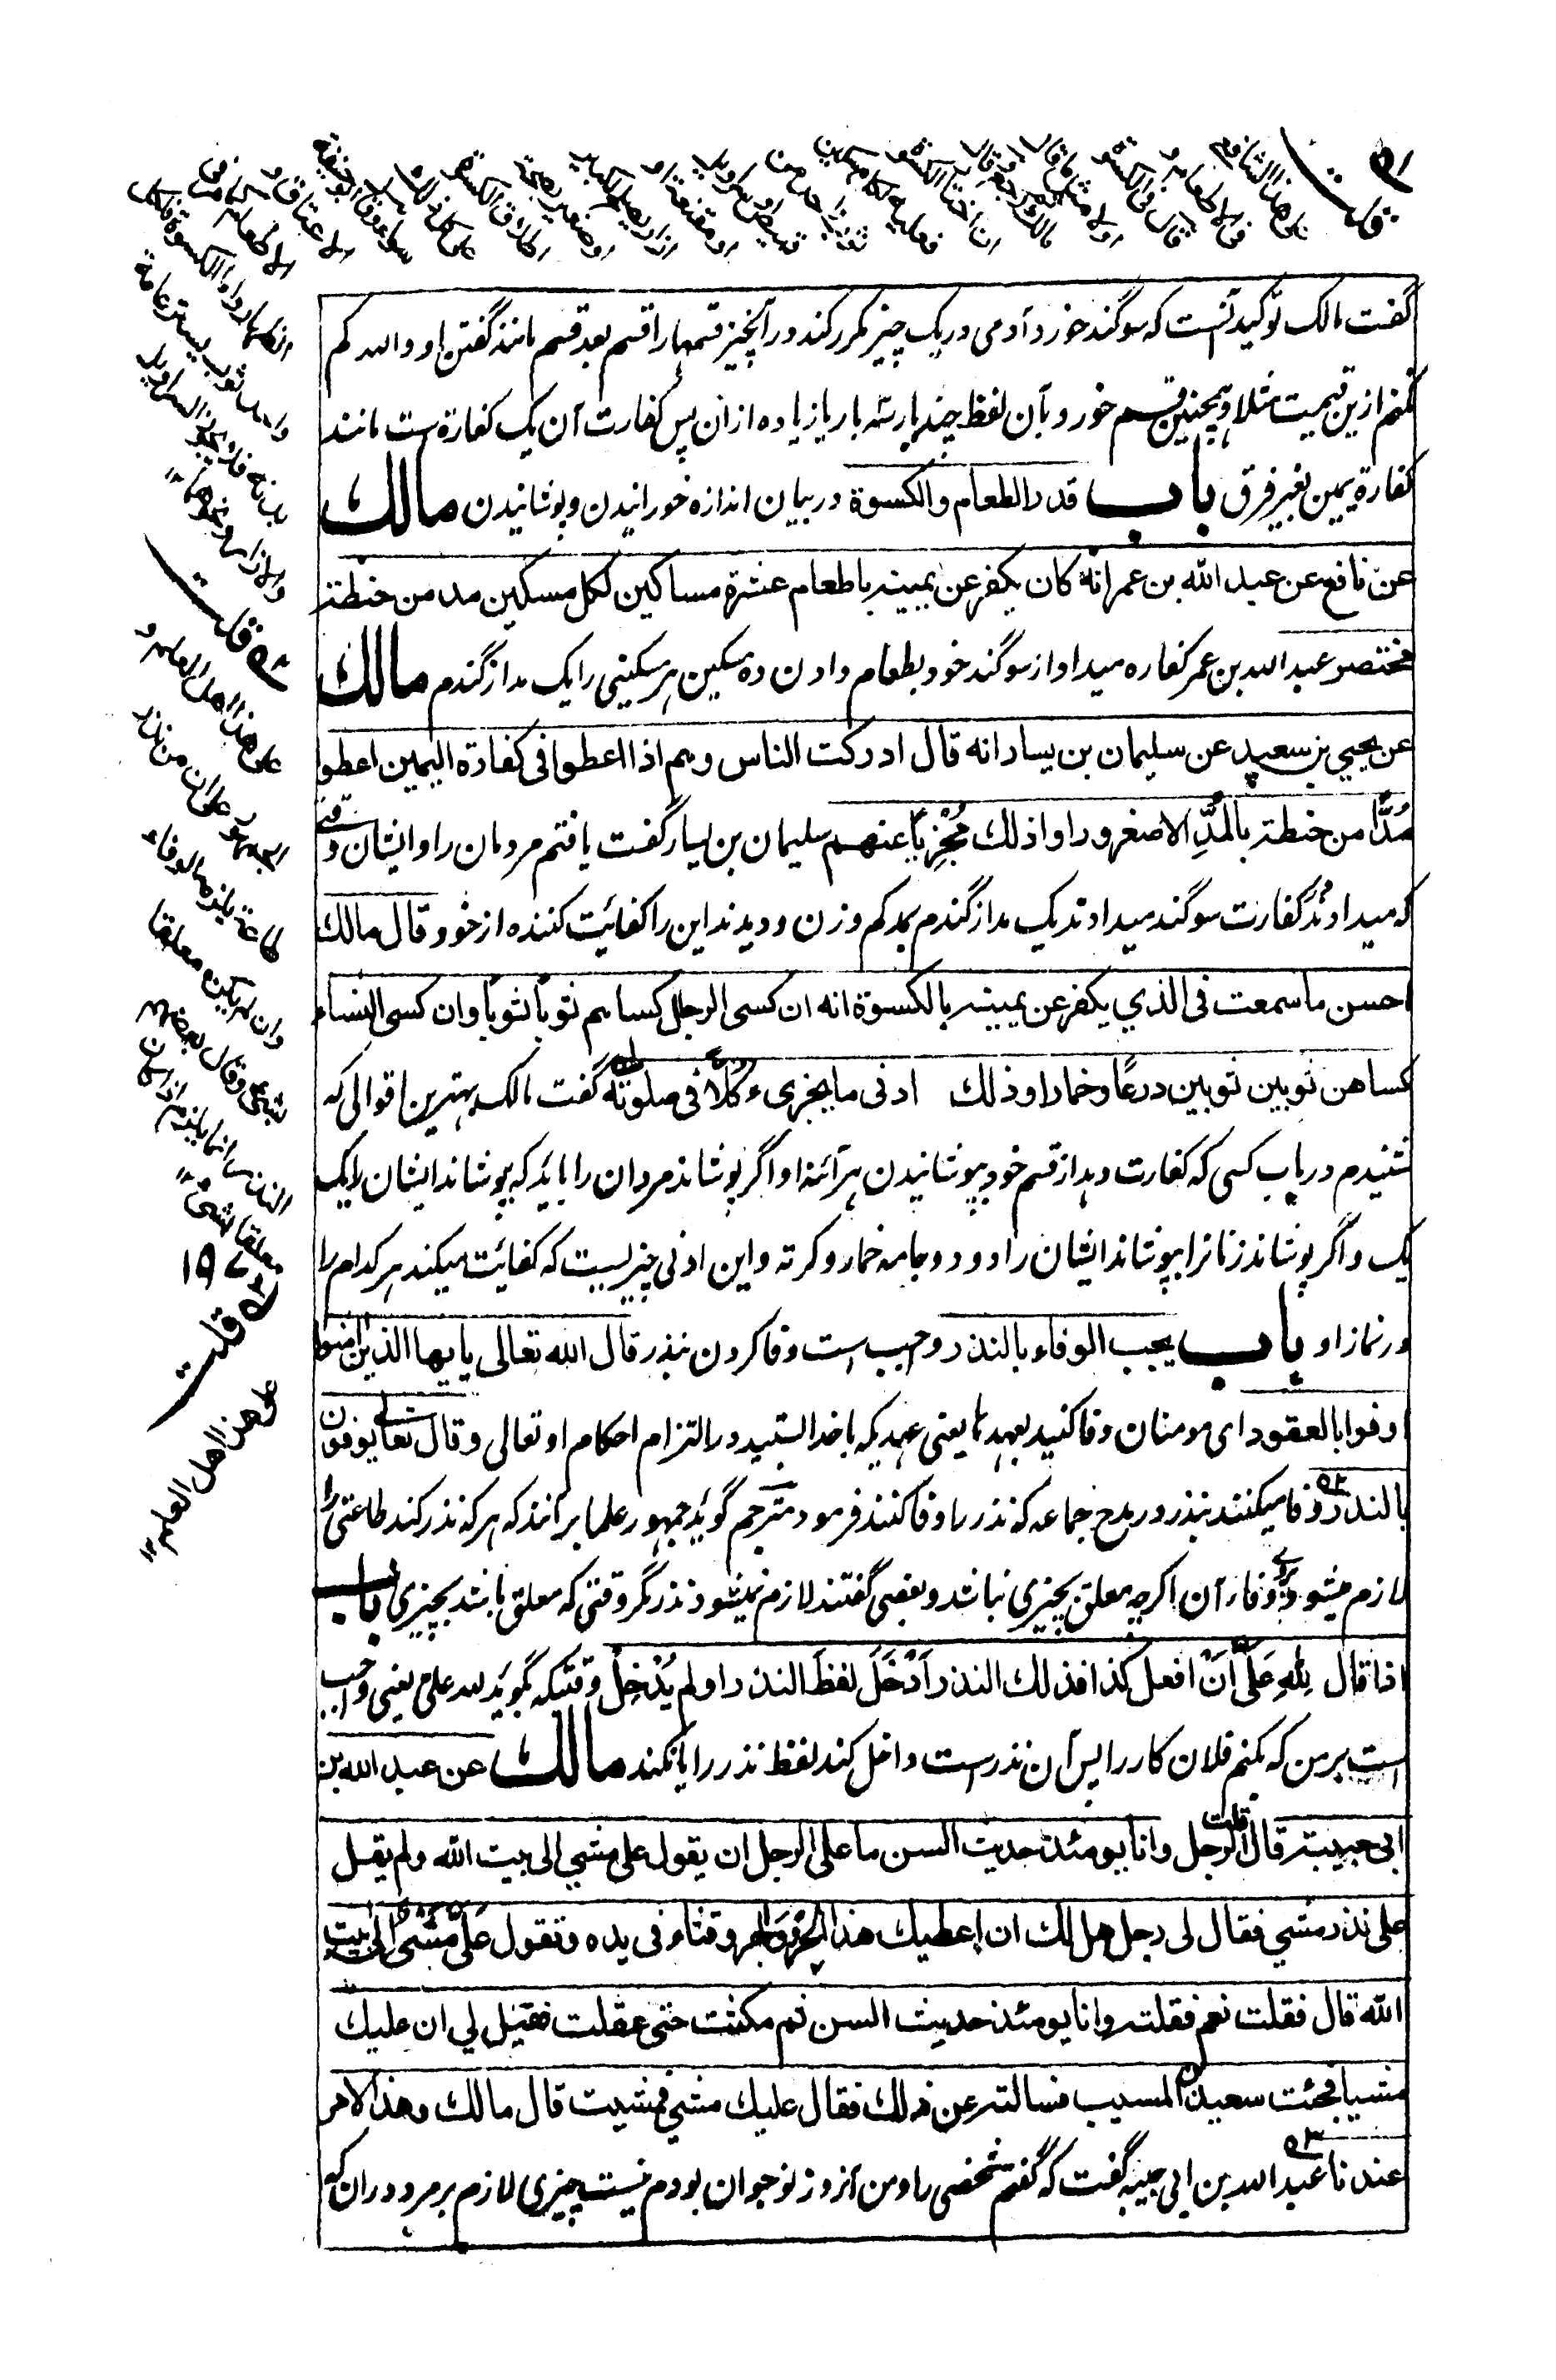 گفت مالک توکید آنست که سوگند خورد آدمی در یک چیز مکرر کند در آنچیز قسمها را قسم بعد قسم مانند گفتن او والله کم
نکنم ازین قیمت مثلا و همچنین قسم خورد بآن لفظ چند بار سه بار یا زیاده ازان پس کفارت آن یک کفارة ست مانند
کفارة یمین بغیر فرق باب قدر الطعام والکسوة در بیان اندازه خورانیدن و پوشانیدن مالك
عن نافع عن عبد الله بن عمر انه كان يكفر عن يمينه باطعام عشرة مساكين لكل مسكين مد من حنطة
مختصر عبد الله بن عمر کفاره میداد از سوگند خود بطعام دادن ده مسکین هر مسکینی را یک مد از گندم مالك
عن يحيي بن سعيد عن سليمان بن يسار انه قال ادركت الناس وهم اذا اعطوا فى كفارة اليمين اعطوا
مُدًّا من حنطة بالمُدِّ الاصغر وراوا ذلك مُجْزِيًا عنهم سلیمان بن یسار گفت یافتم مردمان را و ایشان وقتی
که میدادند در کفارت سوگند میدادند یک مد از گندم بمد کم وزن و دیدند این را کفایت کننده از خود قال مالك
احسن ما سمعت فى الذي يكفر عن يمينه بالكسوة انه ان كسى الرجال كساهم ثوبا ثوبا وان كسى النساء
كساهن ثوبين ثوبين درعًا وخمارا وذلك ادنى ما يجزىء كُلًّا فى صلوته گفت مالک بهترین اقوالی که
شنیدم در باب کسی که کفارت دهد از قسم خود بپوشانیدن هر آئنه او اگر پوشاند مردان را باید که بپوشاند ایشان را یک
یک و اگر پوشاند زنانرا بپوشاند ایشان را دو دو جامه خمار و کرته و این ادنی چیزیست که کفایت میکند هر کدام را
در نماز او باب يجب الوفاء بالنذر واجب است وفا کردن بنذر قال الله تعالى يايها الذين امنوا
اوفوا بالعقود ای مومنان وفا کنید بعهدها یعنی عهدیکه با خدا بستید در التزام احکام او تعالی وقال تعالى يوفون
بالنذر وفا میکنند بنذر در مدح جماعه که نذر را وفا کنند فرمود مترجم گوید جمهور علما برانند که هر که نذر کند طاعتی را
لازم میشود برے وفاء آن اگرچه معلق بچیزی نباشد و بعضی گفتند لازم نمیشود نذر مگر وقتی که معلق باشد بچیزی باب
اذا قال لِلّٰهِ عَلَيَّ اَنْ افعل كذا فذلك النذر اَدْخَلَ لفظَ النذر او لم يُدْخِلْ وقتیکه گوید لله علی یعنی واجب
است بر من که بکنم فلان کار را پس آن نذر است داخل کند لفظ نذر را یا نکند مالك عن عبد الله بن
ابى حبيبة قال قلت لرجل وانا يومئذ حديث السن ما على الرجل ان يقول على مشي الى بيت الله ولم يقل
على نذر مشي فقال لى رجل هل لك ان اعطيك هذا الجرو لجرو قثاء فى يده وتقول عَلَيَّ مَشْيٌ الى بيت
الله قال فقلت نعم فقلته وانا يومئذ حديث السن ثم مكثت حتى عقلت فقيل لي ان عليك
مشيا فجئت سعيد بن المسيب فسالته عن ذلك فقال عليك مشي فمشيت قال مالك وهذا الامر
عندنا عبد الله بن ابی حبیبه گفت که گفتم شخصی را و من آنروز نوجوان بودم نیست چیزی لازم بر مرد دران که
قلت
قلت
على هذا اهل العلم و
الجمهور على ان من نذر
طاعة يلزمه الوفاء
وان لم يكن معلقا
بشيء وقال بعضهم
النذر انما يلزم اذا كان
معلقا بشيء ١٢
قلت
على هذا اهل العلم ١٢